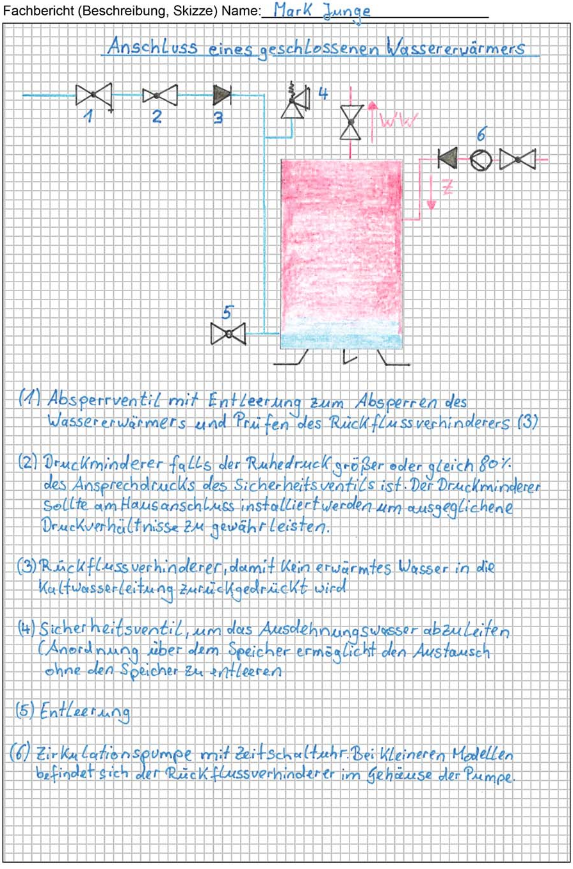 Fachbericht (Beschreibung, Skizze) Name: Mark Junge
Anschluss eines geschlossenen Wassererwärmers
1 2 3 4
WW
6
Z
5
(1) Absperrventil mit Entleerung zum Absperren des
Wassererwärmers und Prüfen des Rückflussverhinderers (3)
(2) Druckminderer falls der Ruhedruck größer oder gleich 80%
des Ansprechdrucks des Sicherheitsventils ist. Der Druckminderer
sollte am Hausanschluss installiert werden um ausgeglichene
Druckverhältnisse zu gewährleisten.
(3) Rückflussverhinderer, damit kein erwärmtes Wasser in die
Kaltwasserleitung zurückgedrückt wird
(4) Sicherheitsventil, um das Ausdehnungswasser abzuleiten
(Anordnung über dem Speicher ermöglicht den Austausch
ohne den Speicher zu entleeren
(5) Entleerung
(6) Zirkulationspumpe mit Zeitschaltuhr. Bei kleineren Modellen
befindet sich der Rückflussverhinderer im Gehäuse der Pumpe.